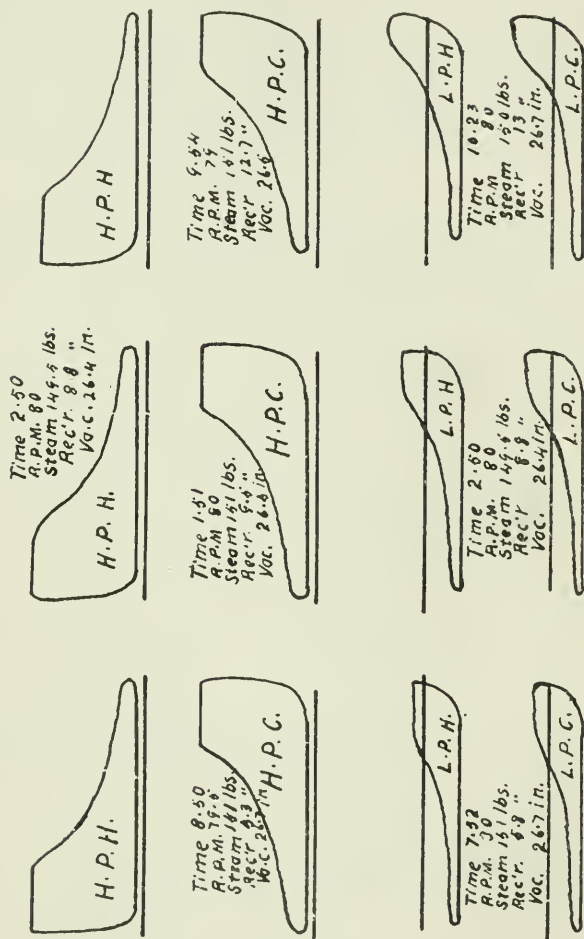 H.P.H
Time 9.54
R.P.M. 79
Steam 151 lbs.
Rec'r 12.7 "
Vac. 26.6
H.P.C.
L.P.H
Time 10.23
R.P.M 80
Steam 150 lbs.
Rec'r 13 "
Vac. 26.7 in.
L.P.C.
Time 2.50
R.P.M. 80
Steam 149.5 lbs.
Rec'r. 8.8 "
Vac. 26.4 in.
H.P.H.
Time 1.51
R.P.M 80
Steam 151 lbs.
Rec'r. 9.5 "
Vac. 26.5 in.
H.P.C.
L.P.H
Time 2.50
R.P.M. 80
Steam 149.5 lbs.
Rec'r 8.8 "
Vac. 26.4 in.
L.P.C.
H.P.H.
Time 8.50
R.P.M. 79.5
Steam 151 lbs.
Rec'r 5.3 "
Vac. 26.7 in.
H.P.C.
L.P.H.
Time 7.32
R.P.M. 30
Steam 151 lbs.
Rec'r. 5.8 "
Vac. 26.7 in.
L.P.C.